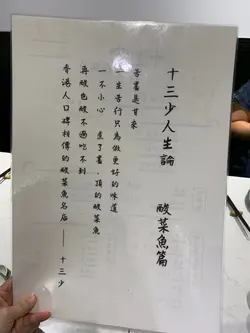 十三少人生論 酸菜魚篇
苦盡是甘來
一生苦行只為做更好的味道
一不小心 頂的酸菜魚
再酸也酸不過吃不到
香港人口碑相傳的酸菜魚名店 —— 十三少